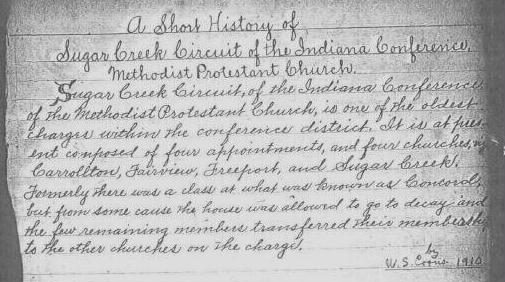 A Short History of
Sugar Creek Circuit of the Indiana Conference,
Methodist Protestant Church.
Sugar Creek Circuit, of the Indiana Conference
of the Methodist Protestant Church, is one of the oldest
charges within the conference district. It is at pres-
ent composed of four appointments, and four churches,
Carrollton, Fairview, Freeport, and Sugar Creek.
Formerly there was a class at what was known as Concord,
but from some cause the house was allowed to go to decay and
the few remaining members transferred their membership
to the other churches on the charge.
by
W. S. 1910